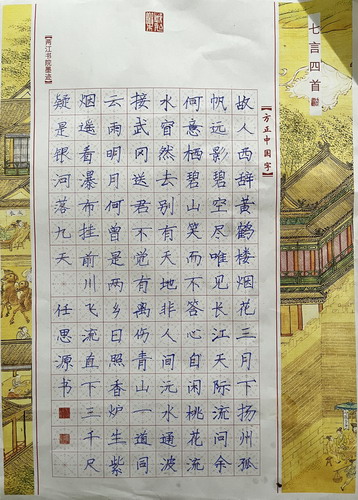 七言四首
【方正中国字】
故人西辞黄鹤楼烟花三月下扬州孤
帆远影碧空尽唯见长江天际流问余
何意栖碧山笑而不答心自闲桃花流
水窅然去别有天地非人间沅水通波
接武冈送君不觉有离伤青山一道同
云雨明月何曾是两乡日照香炉生紫
烟遥看瀑布挂前川飞流直下三千尺
疑是银河落九天 任思源书
【两江书院墨迹】